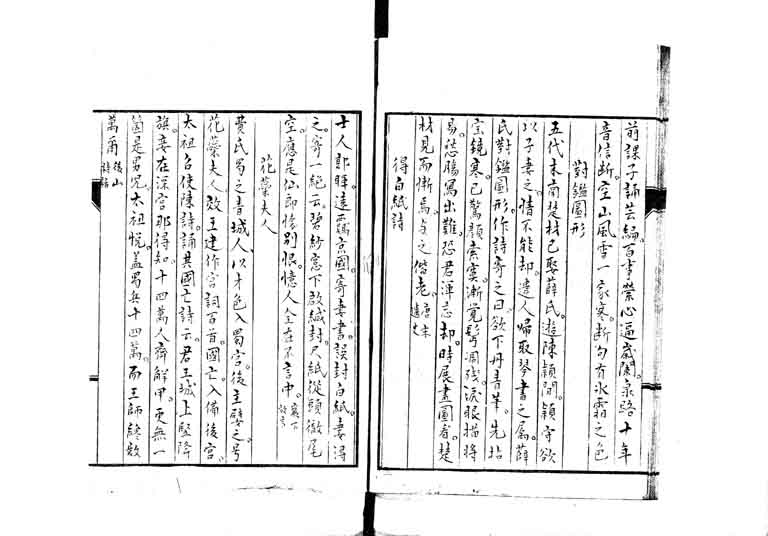 前課子誦芸編百事縈心逼歲闌泉路十年
音信斷空山風雪一家寒斷句有冰霜之色
對鑑圖形
五代末南楚材已娶薛氏遊陳潁間潁守欲
以子妻之情不能却遣人歸取琴書之屬薛
氏對鑑圖形作詩寄之曰欲下丹青筆先拈
寶鏡寒已驚顏索寞漸覺鬢凋殘淚眼描將
易愁腸寫出難恐君渾忘却時展畫圖看楚
材見而慚焉與之偕老唐宋遺史
得白紙詩
士人郭暉遠羈京國寄妻書誤封白紙妻得
之寄一絕云碧紗窓下啟緘封尺紙從頭徹尾
空應是仙郎惨別恨憶人全在不言中
花蘂夫人
費氏蜀之青城人以才色入蜀宫後主嬖之号
花蘂夫人效王建作宫詞百首國亡入備後宫
太祖召使陳詩誦其國亡詩云君王城上竪降
旗妾在深宫那得知十四萬人齊解甲更無一
箇是男児太祖悦蓋蜀兵十四萬而王師終數
萬爾後山詩話